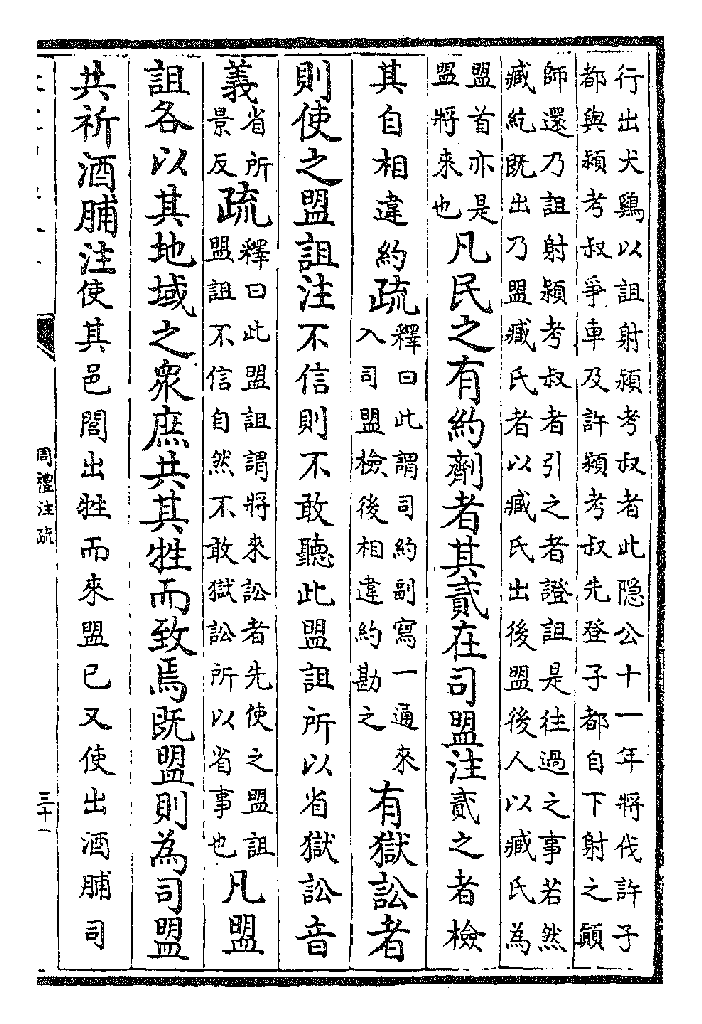 行出犬鷄以詛射頴考叔者此隠公十一年將伐許子
都與頴考叔爭車及許頴考叔先登子都自下射之顛
師還乃詛射頴考叔者引之者證詛是往過之事若然
臧紇既出乃盟臧氏者以臧氏出後盟後人以臧氏為
盟首亦是
盟將來也
凡民之有約劑者其貳在司盟注貳之者檢
其自相違約疏
釋曰此謂司約副寫一通來
入司盟檢後相違約勘之
有獄訟者
則使之盟詛注不信則不敢聽此盟詛所以省獄訟音
義
省所
景反
疏
釋曰此盟詛謂將來訟者先使之盟詛
盟詛不信自然不敢獄訟所以省事也
凡盟
詛各以其地域之衆庶共其牲而致焉既盟則為司盟
共祈酒脯注使其邑閭出牲而來盟已又使出酒脯司
周禮注疏
三十一